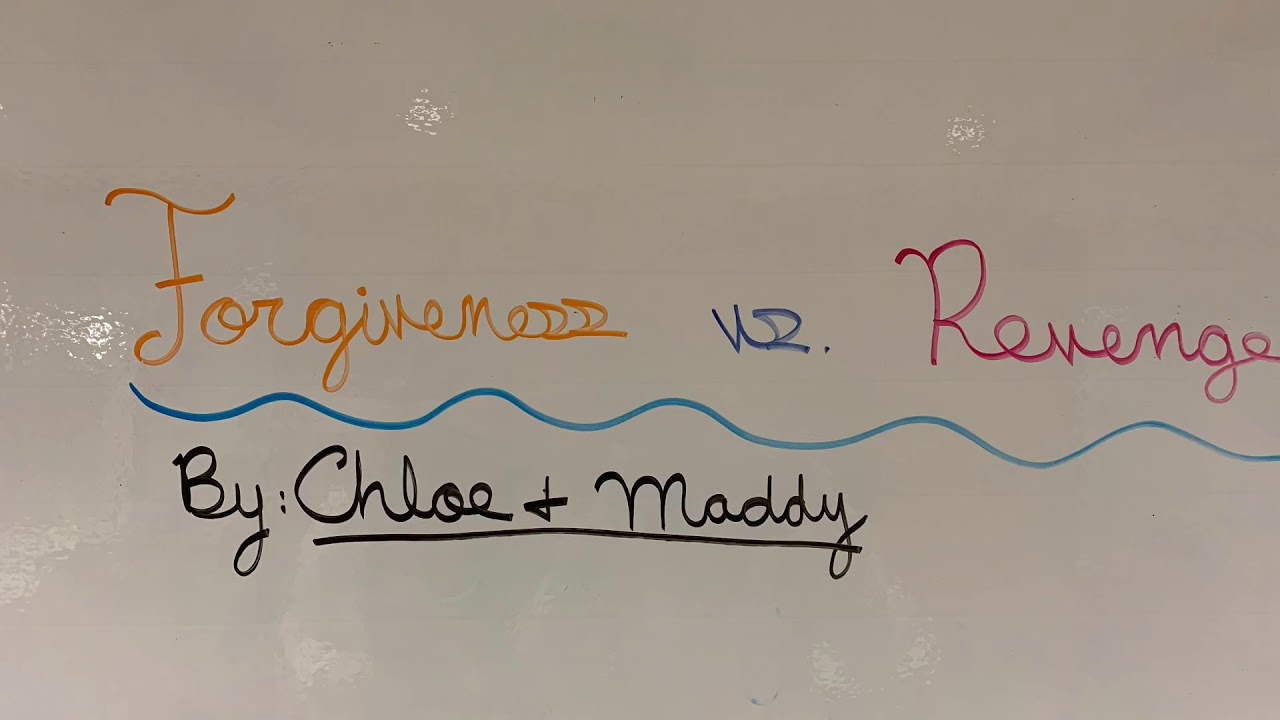 Forgiveness vs. Revenge
By: Chloe + Maddy